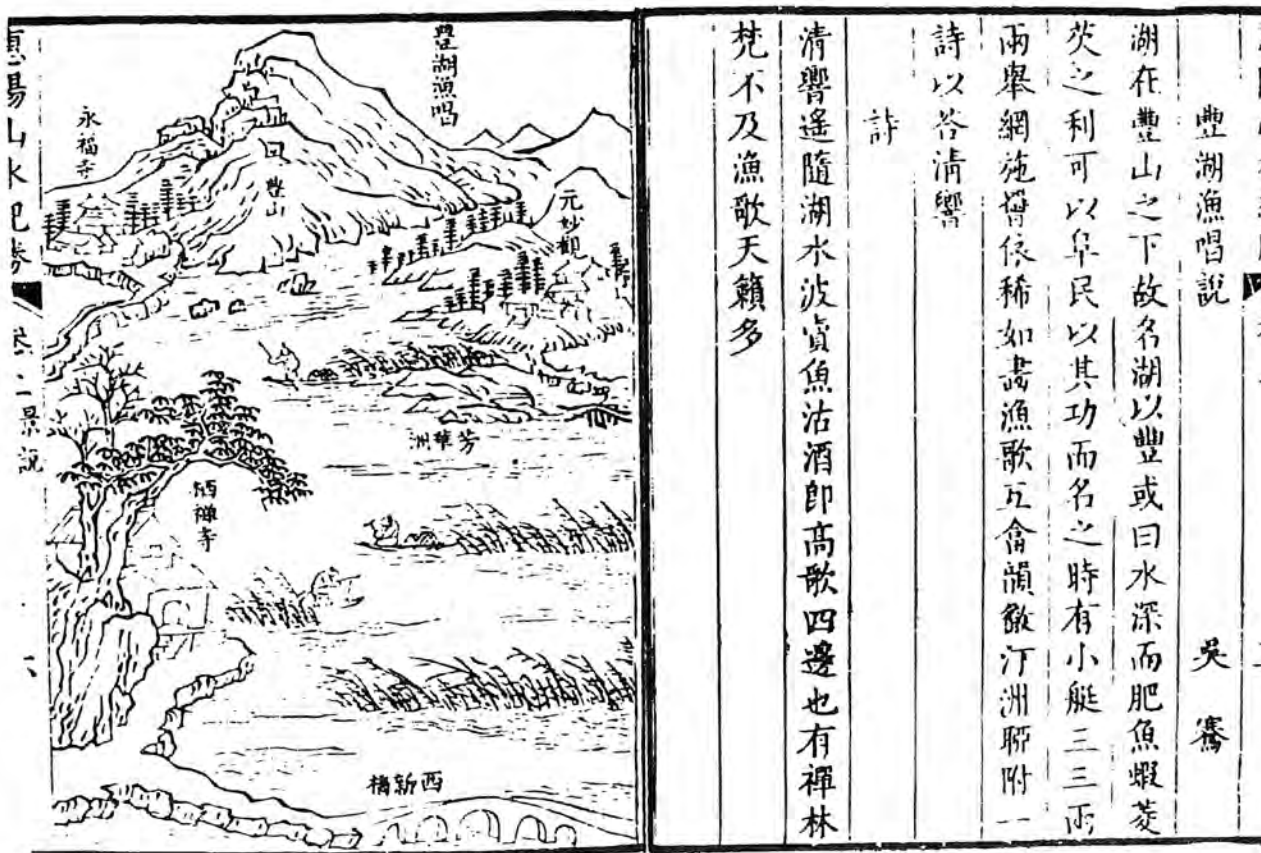 豐湖漁唱說 吳騫
湖在豐山之下故名湖以豐或曰水深而肥魚蝦菱
芡之利可以阜民以其功而名之時有小艇三三兩
兩舉網施罾依稀如畫漁歌互畣韻徹汀洲聊附一
詩以荅清響
詩
清響遙隨湖水波魚沽酒即高歌四邊也有禪林
梵不及漁歌天籟多
豐湖漁唱
元妙觀
豐山
永福寺
芳華洲
栖禪寺
西新橋
惠陽山水紀勝 景說